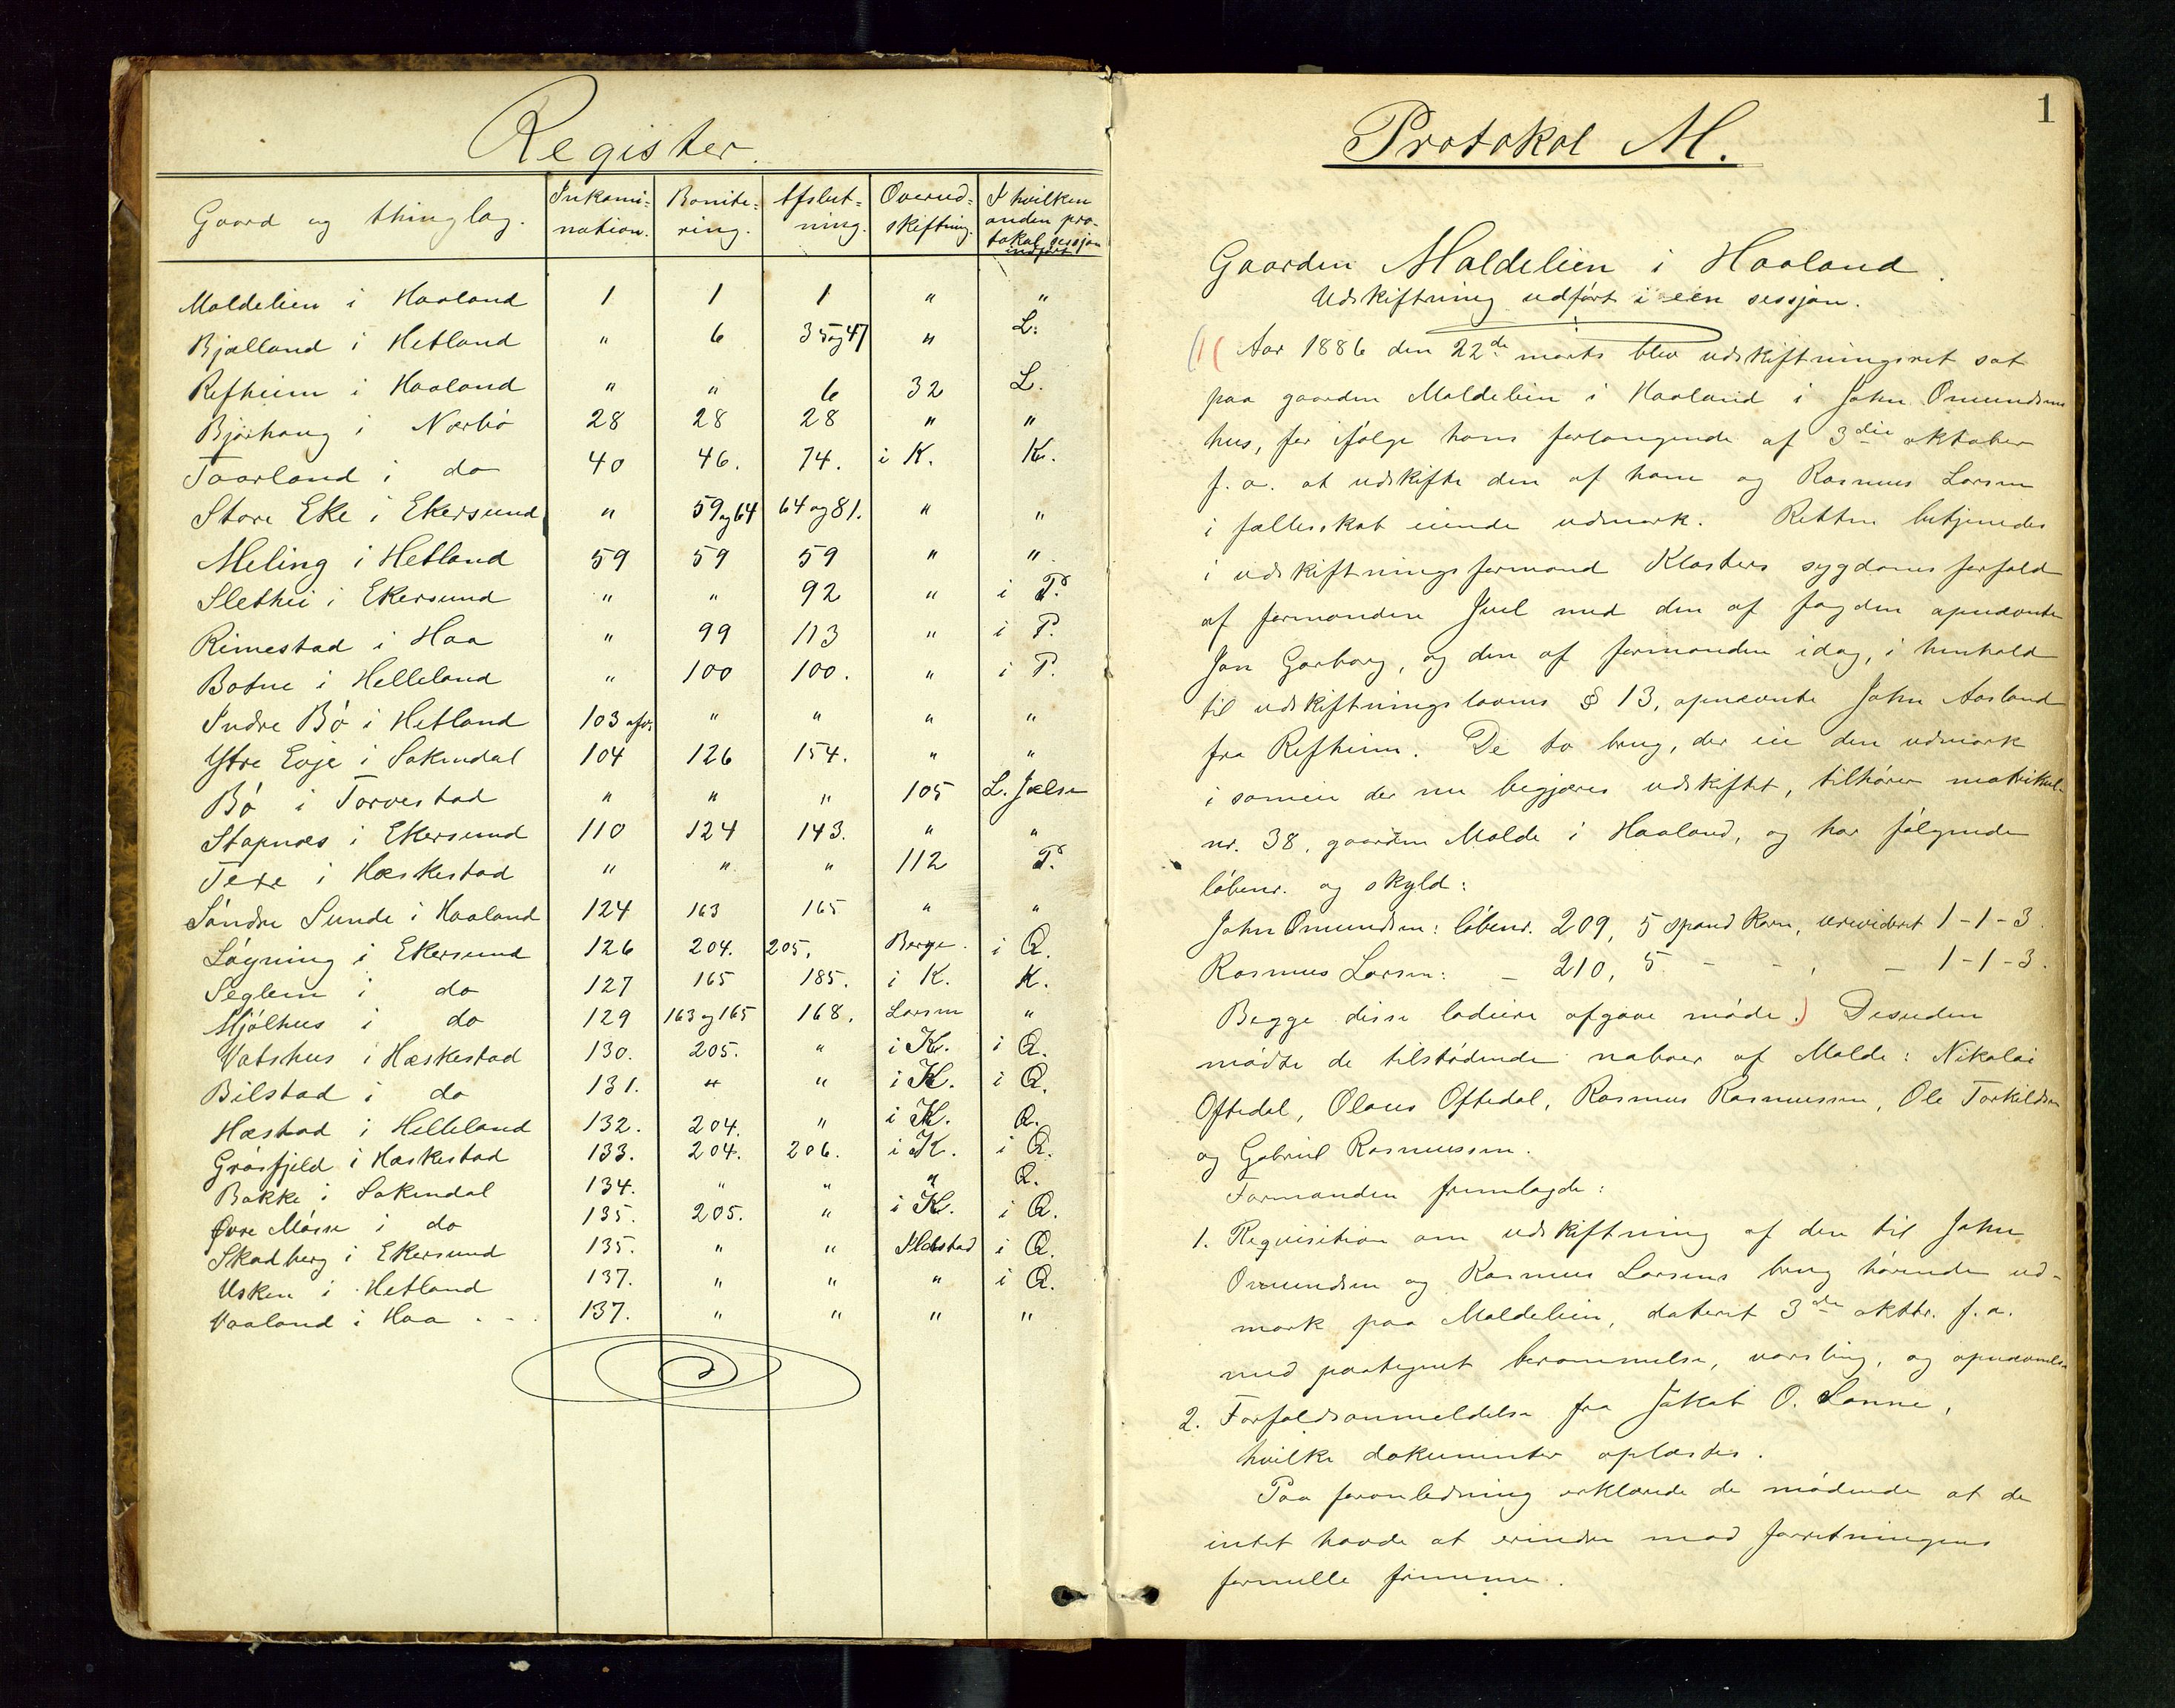 Register.
Gaard og thinglag. | Inkami-nation. | Bonite-ring. | Afslut-ning. | Overud-skiftning. | I hvilken anden pro-tokol sessjon indført
Maldelien i Haaland | 1 | 1 | 1 | " | "
Bjælland i Hetland | " | 6 | 35 og 47 | " | L.
Refheim i Haaland | " | " | 6 | 32 | L.
Bjørhaug i Nærbø | 28 | 28 | 28 | " | "
Taarland i do | 40 | 46. | 74. | i K. | K.
Store Eke i Ekersund | " | 59 og 64 | 64 og 81. | " | "
Meling i Hetland | 59 | 59 | 59 | " | "
Slethei i Ekersund | " | " | 92 | " | i P.
Rimestad i Haa | " | 99 | 113 | " | i P.
Botne i Helleland | " | 100 | 100. | " | i P.
Indre Bø i Hetland | 103 afv. | " | " | " | "
Ytre Eoje i Sokendal | 104 | 126 | 154. | " | "
Bø i Torvestad | " | " | " | 105 | L. Jælse
Stapnes i Ekersund | 110 | 124 | 143. | " | "
Texe i Hæskestad | " | " | " | 112 | P.
Søndre Sunde i Haaland | 124 | 163 | 165 | " | "
Løgning i Ekersund | 126 | 204. | 205. | Berge. | i Q.
Seglem i do | 127 | 165 | 185. | i K. | K.
Mjølhus i do | 129 | 163 og 165 | 168. | Larsen | "
Vatshus i Hæskestad | 130. | 205. | " | i K. | i Q.
Bilstad i do | 131. | " | " | i K. | i Q.
Hæstad i Helleland | 132. | 204. | " | i K. | Q.
Gråsfjeld i Hæskestad | 133. | 204. | 206. | i K. | i Q.
Bakke i Sokendal | 134. | " | " | " | Q.
Øvre Mòsse i do | 135. | 205. | " | i K. | i Q.
Skadberg i Ekersund | 135. | " | " | | i Q.
Usken i Hetland | 137. | " | " | " | i Q.
Vaaland i Haa | 137. | " | " | " | "
1
Protokol M.
Gaarden Maldelien i Haaland.
Udskiftning udført i een sessjon.
Aar 1886 den 22de marts blev udskiftningsret sat
paa gaarden Maldelien i Haaland i John Omundsens
hus, for ifølge hans forlangende af 3die oktober
f. a. at udskifte den af ham og Rasmus Larsen
i fællesskab eiende udmark. Retten betjenedes
i udskiftningsformand Klosters sygdomsforfald
af formanden Juel med den af fogden opnævnte
Jon Garborg, og den af formanden idag, i henhold
til udskiftningslovens § 13, opnævnte John Aasland
fra Refheim. De to brug, der eie den udmark
i sameie der nu begjæres udskiftet, tilhører matrikul-
nr. 38, gaarden Malde i Haaland, og har følgende
løbenr. og skyld:
John Omundsen: løbenr. 209, 5 spand korn, urevideret 1-1-3.
Rasmus Larsen: – 210, 5 – – , – 1-1-3.
Begge disse lodeiere afgave møde.) Desuden
mødte de tilstødende naboer af Malde: Nikolai
Oftedal, Olaus Oftedal, Rasmus Rasmussen, Ole Torkildsen
og Gabriel Rasmussen.
Formanden fremlagde:
1. Reqvisition om udskiftning af den til John
Omundsen og Rasmus Larsens brug hørende ud-
mark paa Maldelien, dateret 3die oktbr. f. a.
med paategnet berammelse, varsling, og opnævnelse
2. Forfaldsanmeldelse fra Jakob O. Sønne,
hvilke dokumenter oplæstes.
Paa foranledning erklærede de mødende at de
intet havde at erindre mod forretningens
formelle fremme.